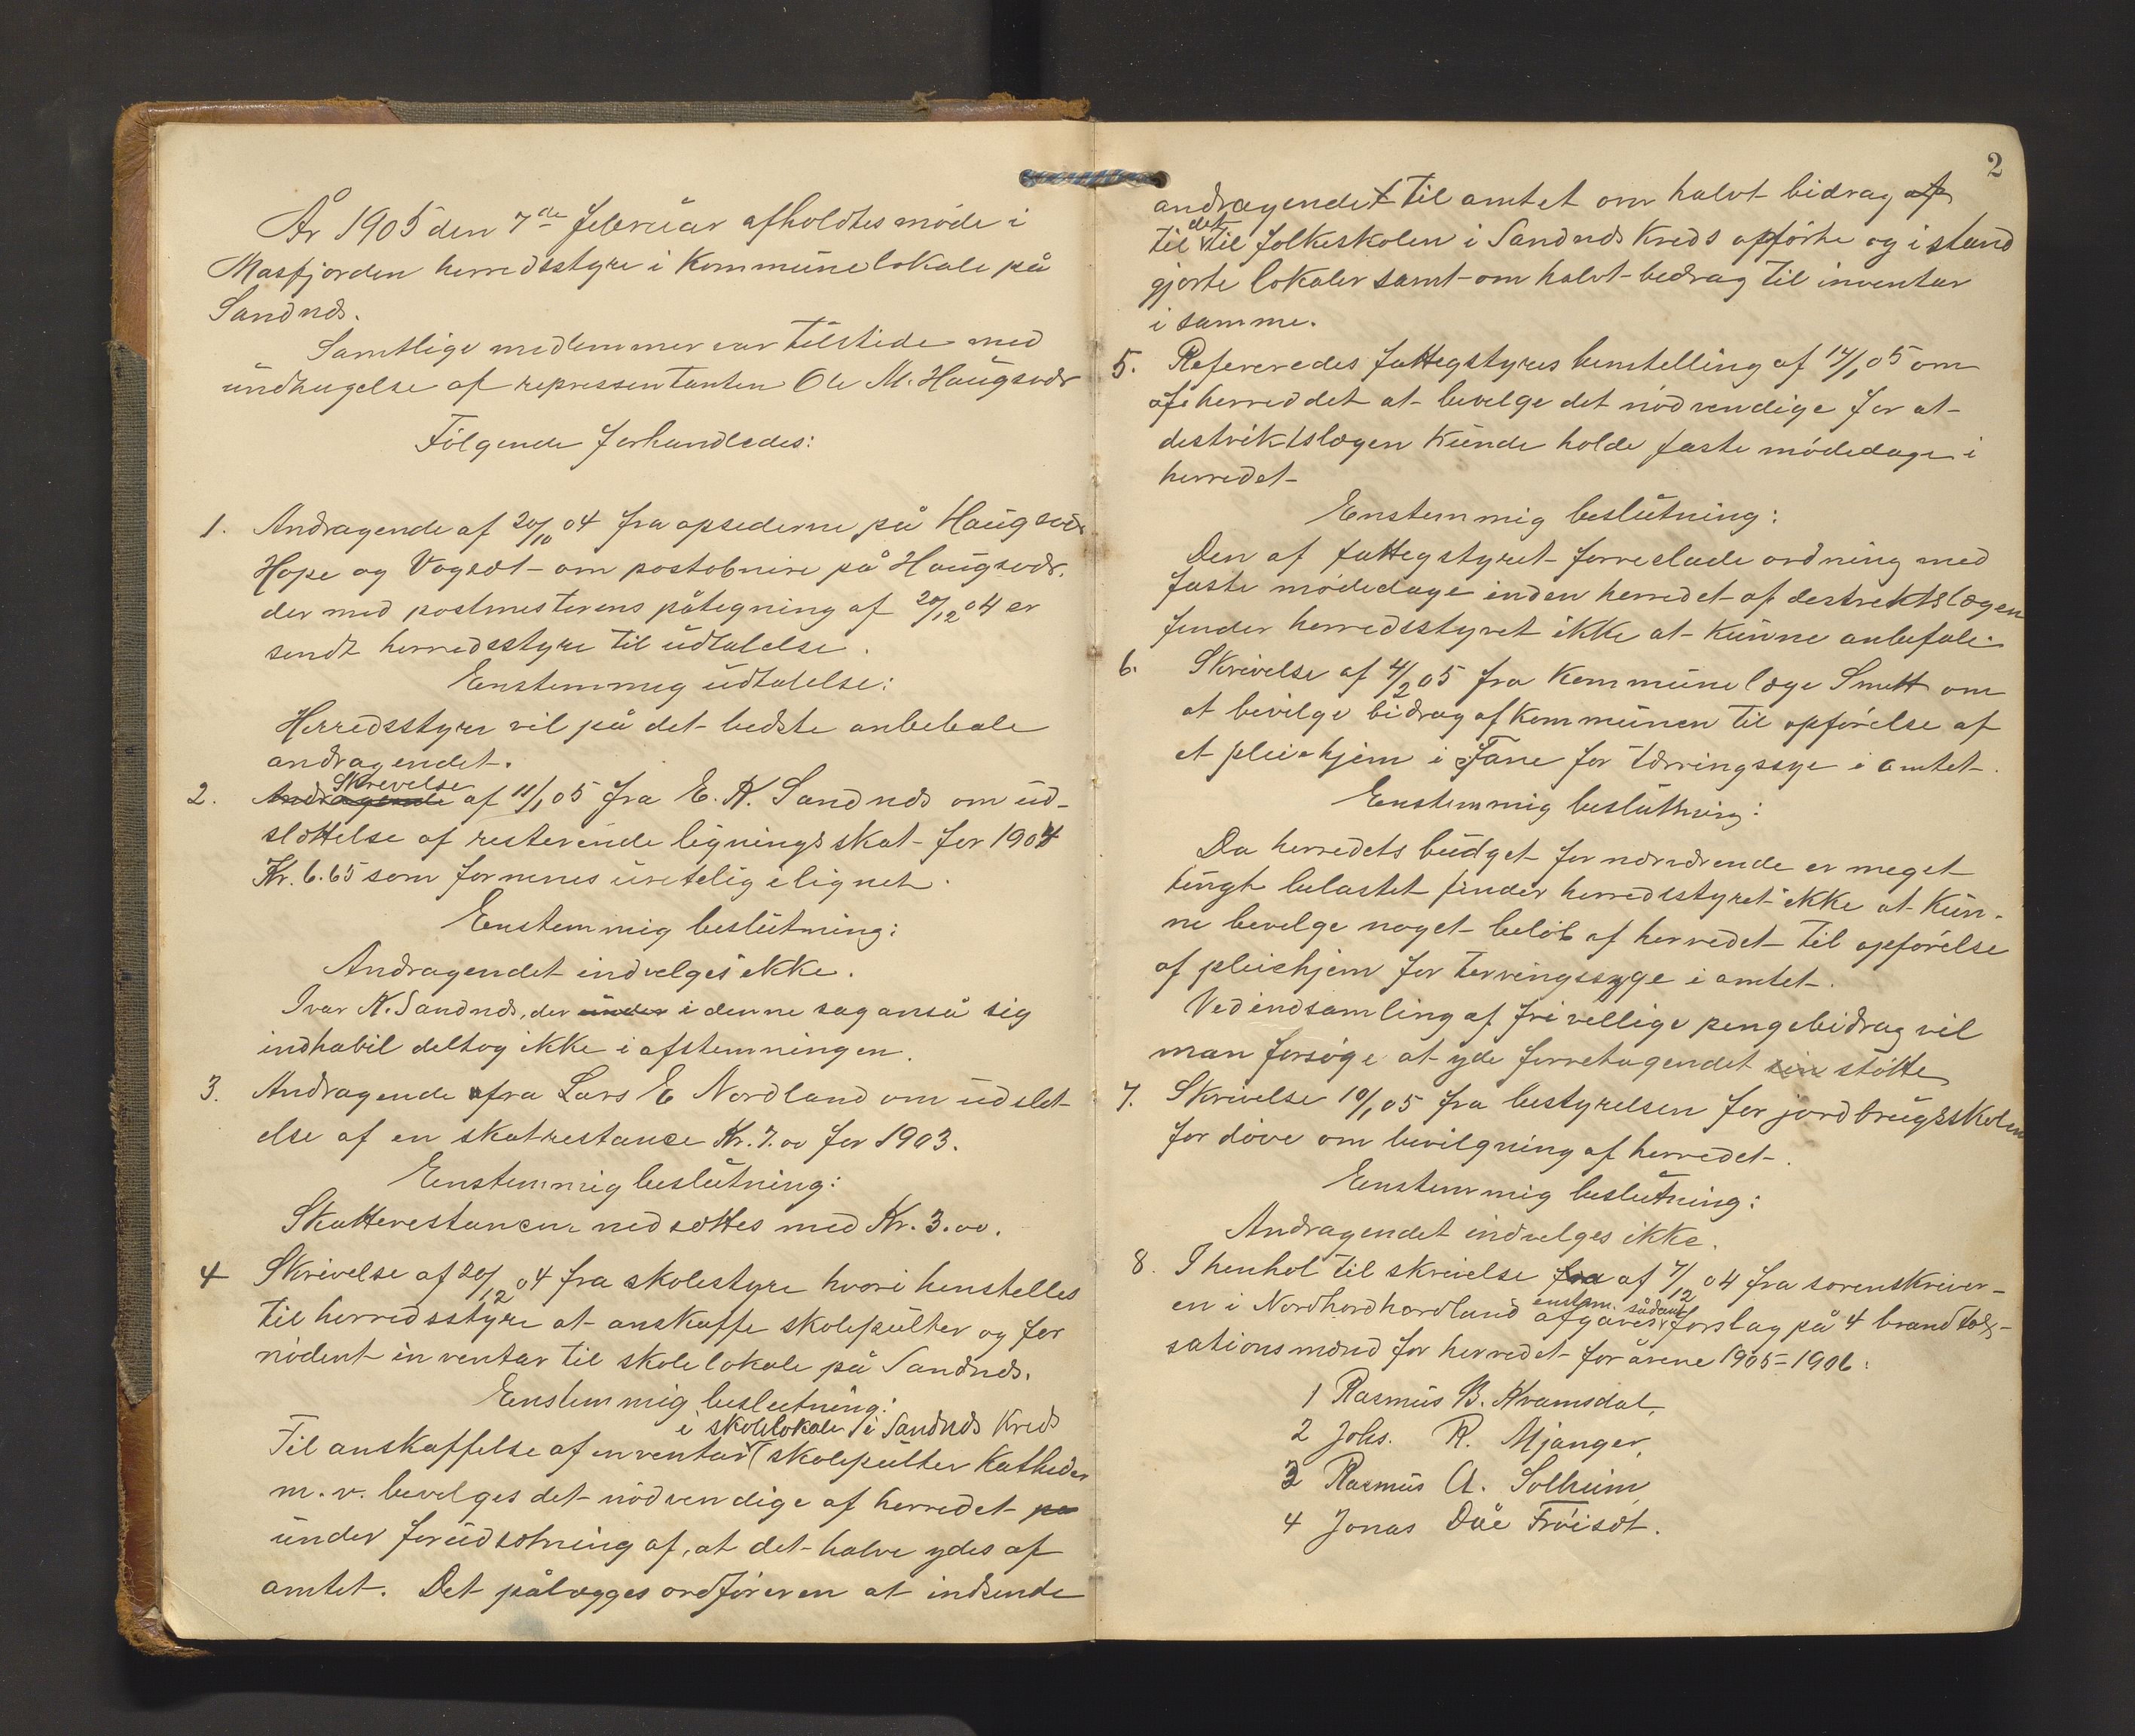 År 1905 den 7de februar afholdtes møde i
Masfjorden herredsstyre i kommunelokale på
Sandnæs.
Samtlige medlemmer var tilstede med
undtagelse af repressentanten Ole M. Haugsvær
Følgende forhandledes:
1. Andragende af 20/10 04 fra opsederne på Haugsvær
Hope og Vogsæt om postobneri på Haugsvær.
der med postmesterens påtegning af 20/12 04 er
sendt herredsstyre til udtalelse.
Enstemmeg udtalelse:
Herredsstyre vil på det bedste anbebale
andragendet.
Skrevelse
2. Andragende af 11/1 05 fra E. K. Sandnæs om ud-
slættelse af resterende ligningsskat for 1904
Kr. 6.65 som formenes uretelig ilignet.
Enstemmig beslutning:
Andragendet indvelges ikke.
Ivar K. Sandnæs, der under i denne sag anså sig
indhabil deltog ikke i afstemningen.
3. Andragende fra Lars E Nordland om udslet-
else af en skatrestance Kr. 7.00 for 1903.
Enstemmig beslutning:
Skatterestancen nedsættes med Kr. 3.00.
4 Skrivelse af 20/12 04 fra skolestyre hvori henstelles
til herredsstyre at anskaffe skolepulter og for
nødent inventar til skolelokale på Sandnæs.
Enstemmig beslutning:
i skolelokale i Sandnæs Kreds
Til anskaffelse af enventar (skolepulter Katheder
m.v. bevelges det nødvendige af herredet pa
under forudsætning af, at det halve ydes af
amtet. Det pålægges ordføreren at indsende
2
andragendet til amtet om halvt bidrag af
det
til til folkeskolen i Sandnæs Kreds opførte og i stand
gjorte lokaler samt om halvt bedrag til inventar
i samme.
5. Refereredes fattegstyres hemstelling af 14/1 05 om
af herreddet at bevelge det nødvendige for at
destriktslægen kunde holde faste mødedage i
herredet
Enstemmig beslutning:
Den af fattegstyret forreslaade ordning med
faste mødedage inden herredet af destrektslægen
fender herredsstyret ikke at kunne anbefale.
6. Skrivelse af 4/2 05 fra Kommunelæge Smitt om
at bevilge bidrag af kommunen til opførelse af
et pleiehjem i Fane for tærringssyge i amtet.
Enstemmig beslutning:
Da herredets budget for nærværende er meget
tungt belastet finder herredsstyret ikke at kun-
ne bevelge noget beløb af herredet til opførelse
af pleiehjem for terringssyge i amtet.
Ved indsamling af frivellige pengebidrag vil
man forsøge at yde forretagendet sin støtte
7. Skrivelse 10/1 05 fra bestyrelsen for jordbrugsskolen
for døve om bevilgning af herredet.
Enstemmig beslutning:
Andragendet indvelges ikke.
8. I henhol til skreielse fra af 7/12 04 fra sorenskriver-
enstem. sådant
en i Nordhordhordland afgaves forslag på 4 brandtak-
sationsmænd for herredet for årene 1905-1906:
1 Rasmus B. Kvamsdal,
2 Johs. R. Mjanger,
3 Rasmus A. Solheim,
4 Jonas Dåe Frøisæt.